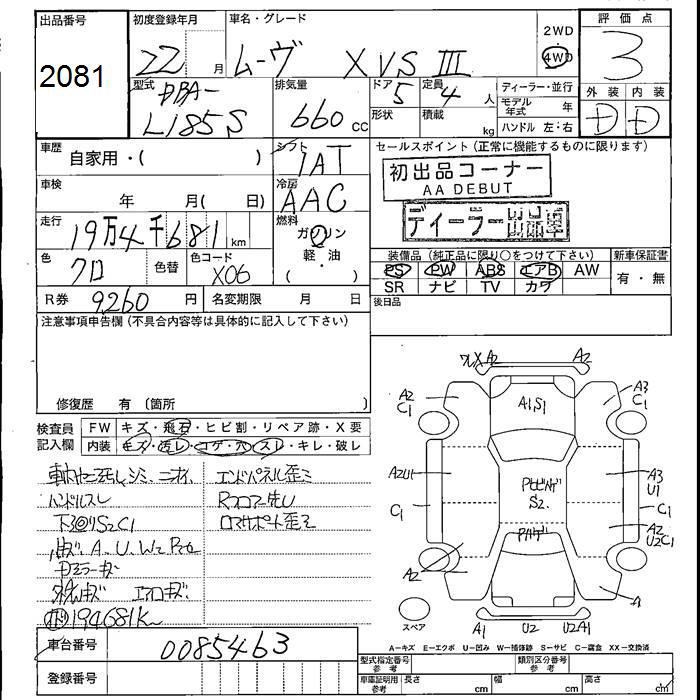 出品番号
2081
初度登録年月
22 月
車名・グレード
ムーヴ X VS III
2WD
4WD
評価点
3
外装 内装
D D
型式
DBA-
L185S
排気量
660 cc
ドア
5
定員
4 人
形状
積載
kg
ディーラー・並行
モデル年式 年
ハンドル 左・右
車歴
自家用・( )
シフト
IAT
車検
年 月( 日)
冷房
AAC
走行
19万4千681 km
燃料
ガソリン
軽・油
( )
色
クロ
色替
色コード
X06
R券 9,260 円
名変期限 月 日
セールスポイント(正常に機能するものに限ります)
初出品コーナー
AA DEBUT
ディーラー出品車
装備品(純正品に限り○をつけて下さい)
PS PW ABS エアB AW
SR ナビ TV カワ
新車保証書
有・無
後日品
注意事項申告欄(不具合内容等は具体的に記入して下さい)
修復歴 有〔箇所 〕
検査員記入欄
FW キズ・飛石・ヒビ割・リペア跡・X要
内装 キズ・汚レ・コゲ・穴・スレ・キレ・破レ
ハンドルスレ
エンドパネル歪ミ
下回りS2C1
ロマサポート歪ミ
A、U、W2
194681K
車台番号 0085463
登録番号
A2
A2
A2
C1
A1,S1
A3
C1
A2U1
S2.
A3
U1
C1
C1
A2
U2C1
A2
A1
スペア
A1 U2 U2A1
A=キズ E=エクボ U=凹み W=補修跡 S=サビ C=腐食 XX=交換済
型式指定番号 参考
類別区分番号 参考
車庫証明用 参考
長さ cm
幅 cm
高さ cm